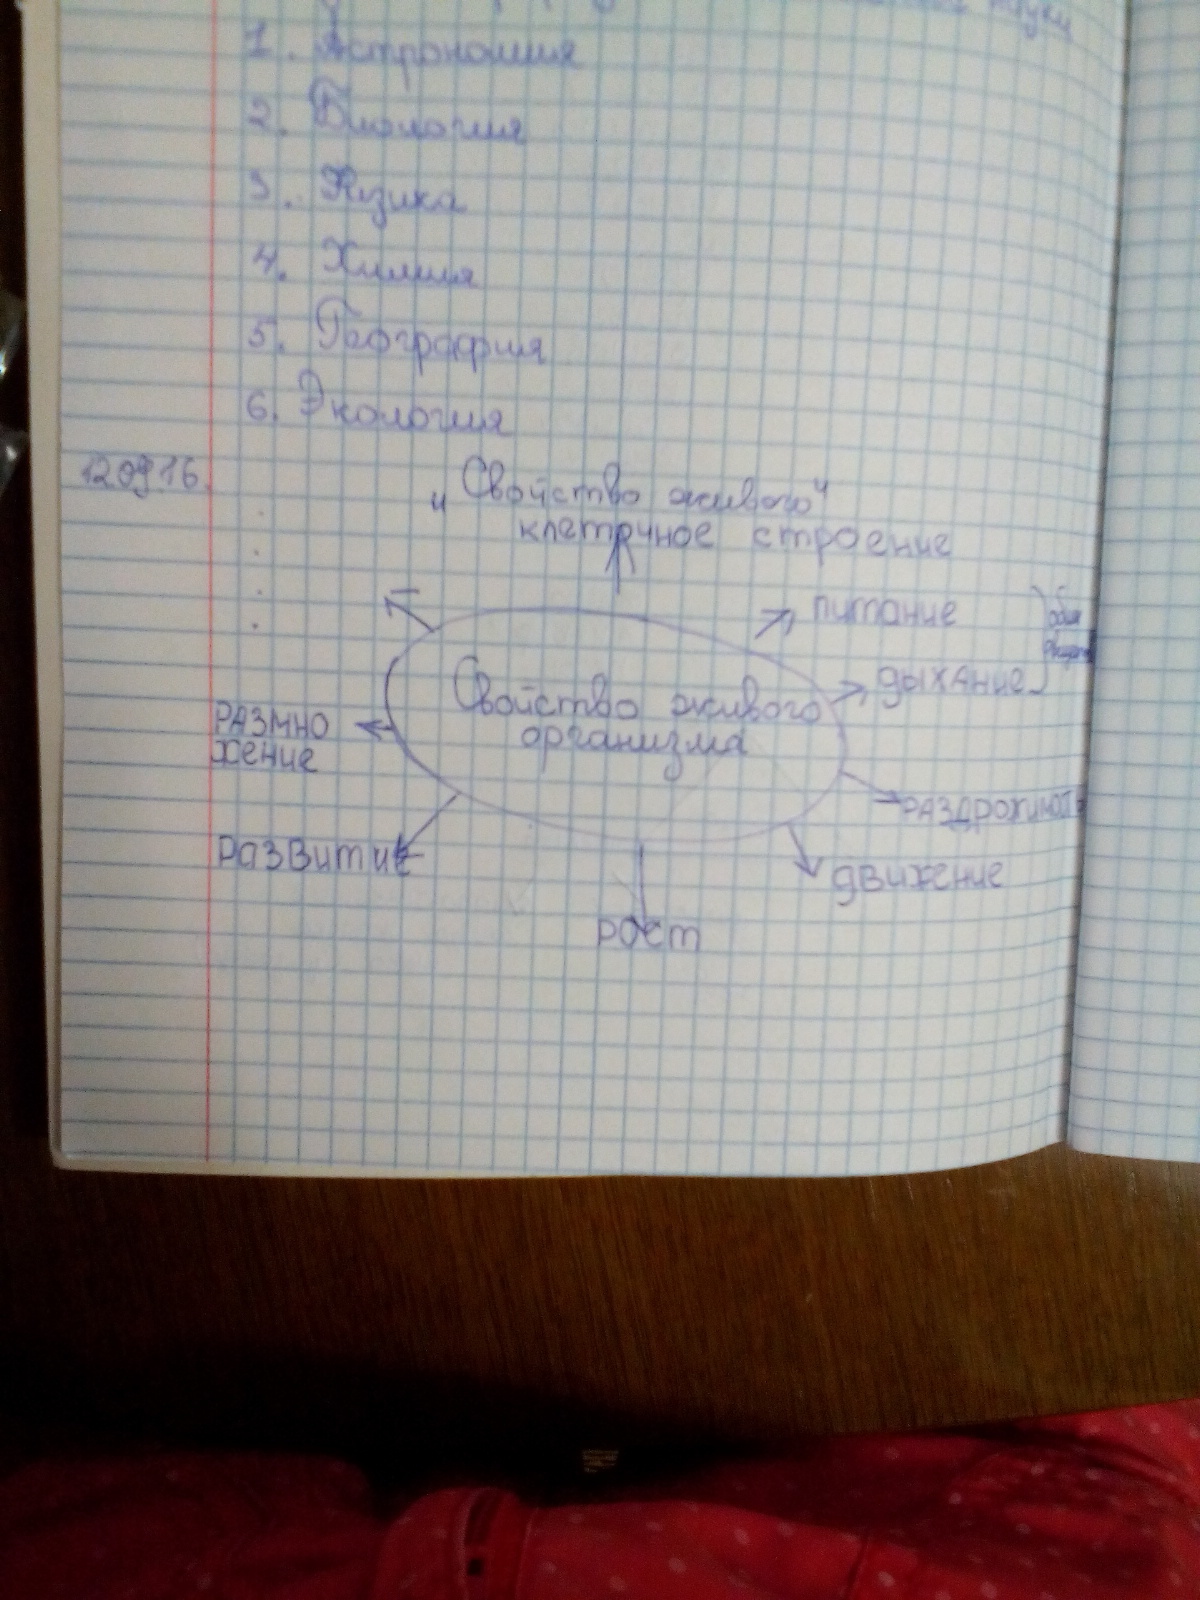 науки
1. Астрономия
2. Биология
3. Физика
4. Химия
5. География
6. Экология
12.09.16
„Свойство живого“
клеточное строение
питание
дыхание
Свойство живого
организма
РАЗМНО
жение
раздрожимость
развитие
движение
рост